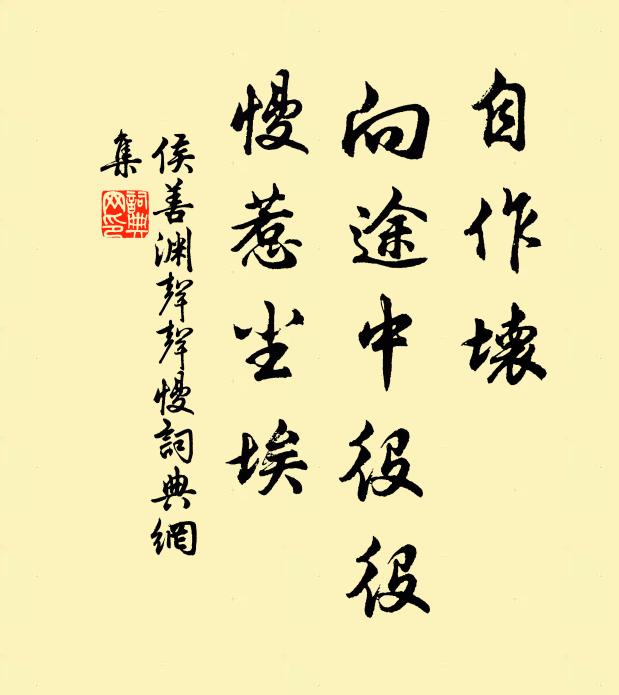 自作壞
向途中役役
慢惹尘埃
侯善渊聲聲慢詞典網
集
詞典网印